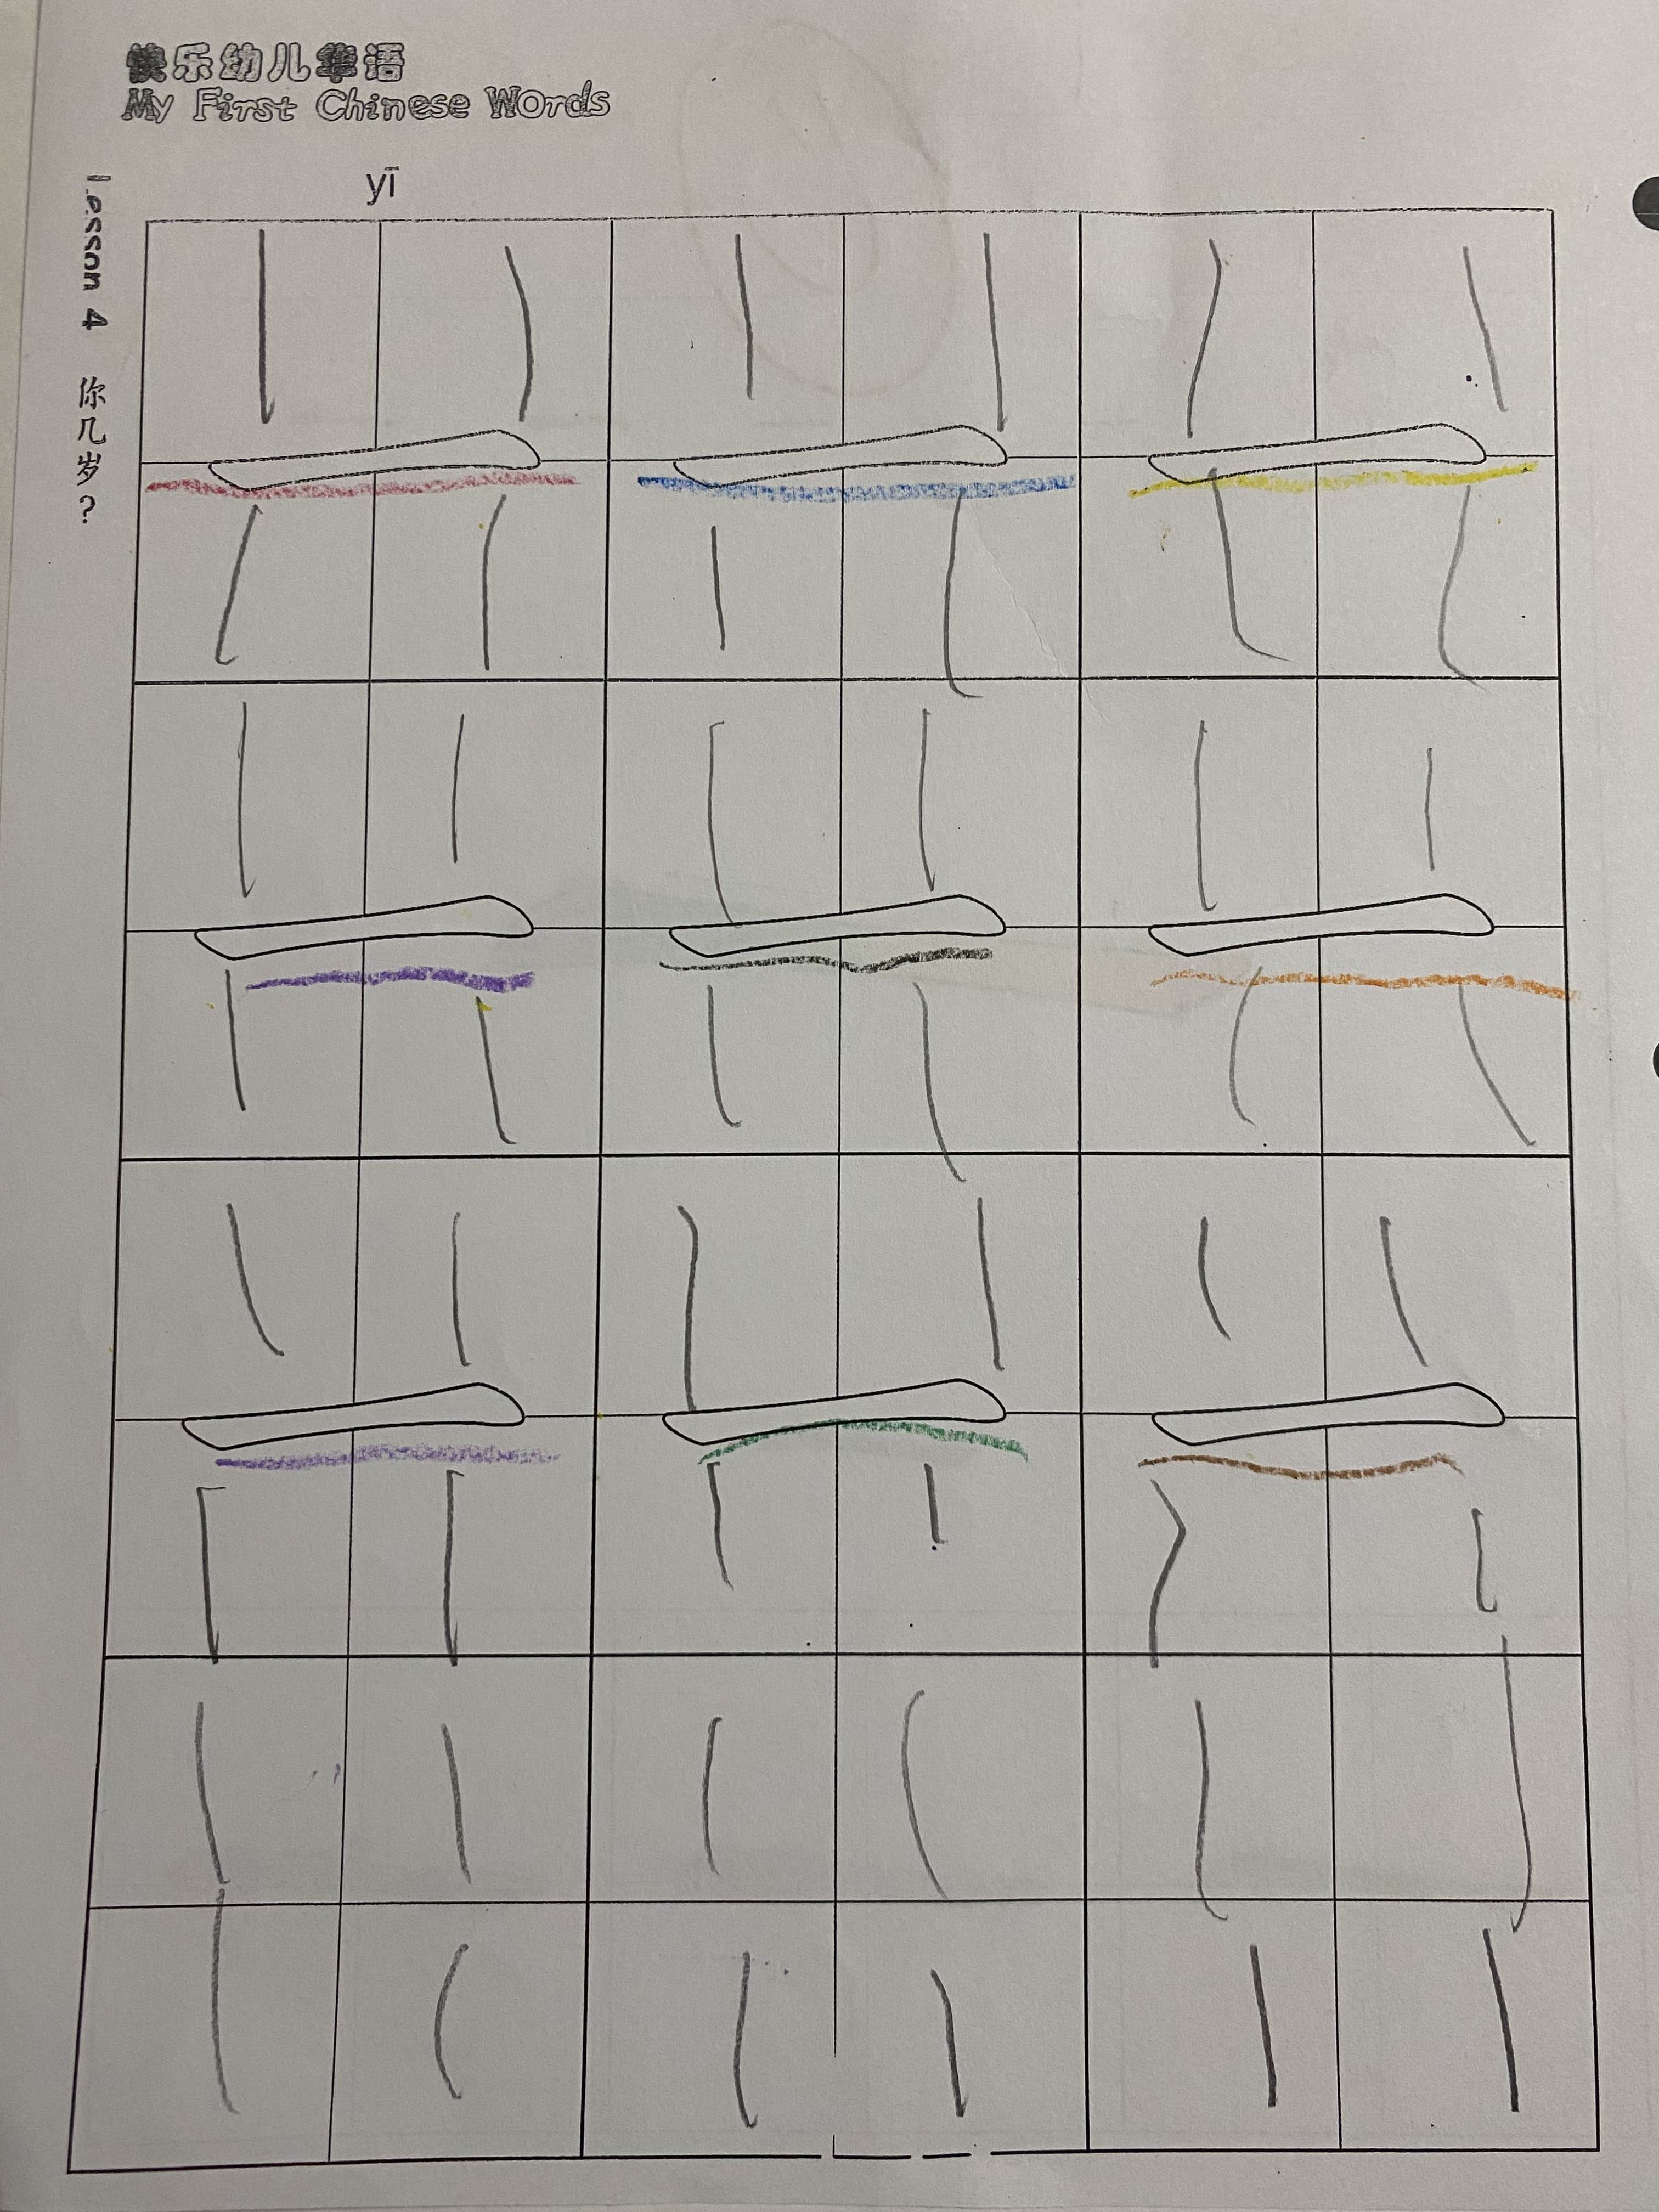 快乐幼儿华语
My First Chinese Words
Lesson 4 你几岁？
yī
一 一 一
一 一 一
一 一 一